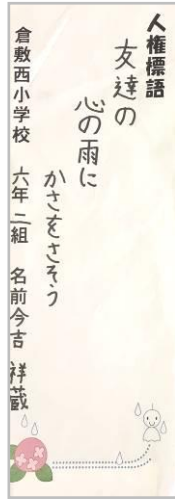 人権標語
友達の
心の雨に
かさをさそう
倉敷西小学校 六年 二組 名前今吉 祥蔵